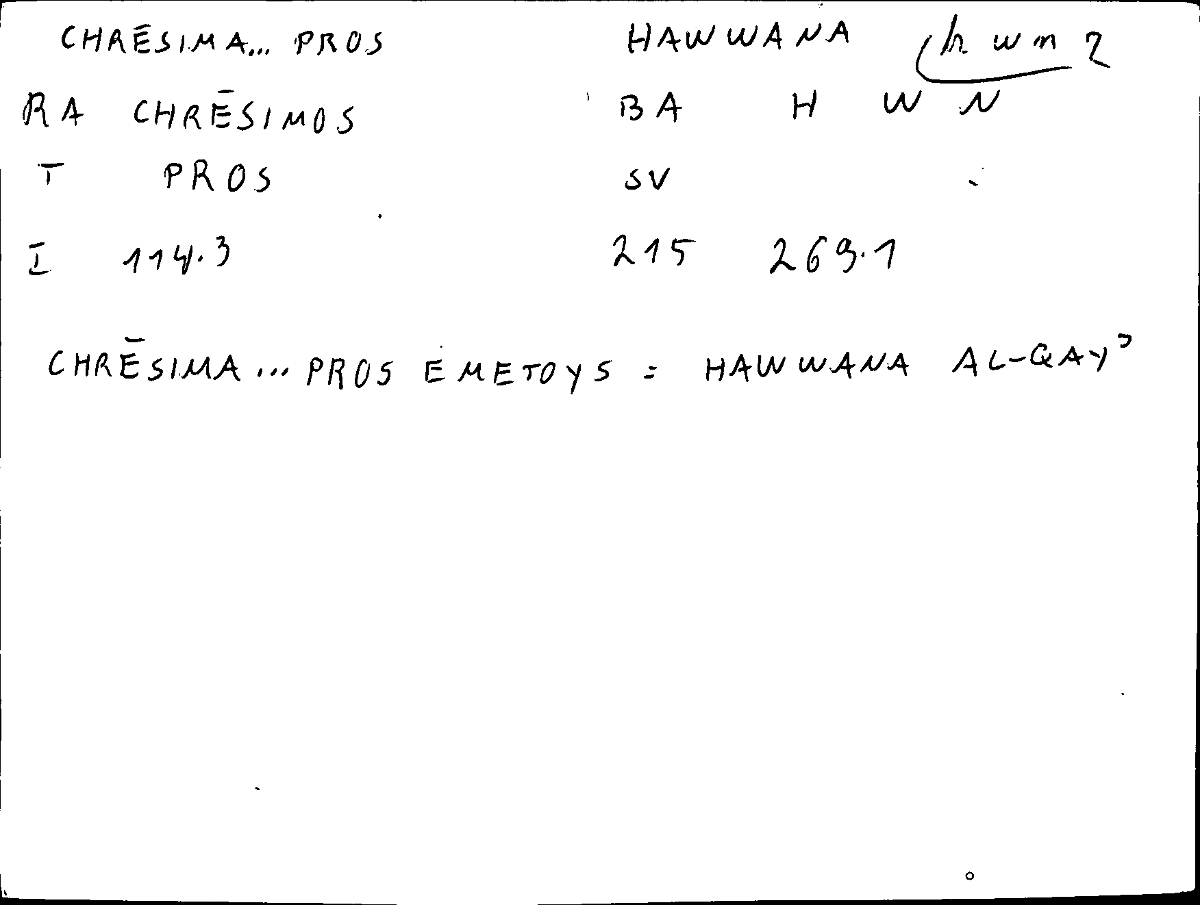 CHRĒSIMA... PROS HAWWANA hwn2
RA CHRĒSIMOS BA H W N
T PROS SV
I 114.3 215 269.1
CHRĒSIMA... PROS EMETOYS = HAWWANA AL-QAYʾ